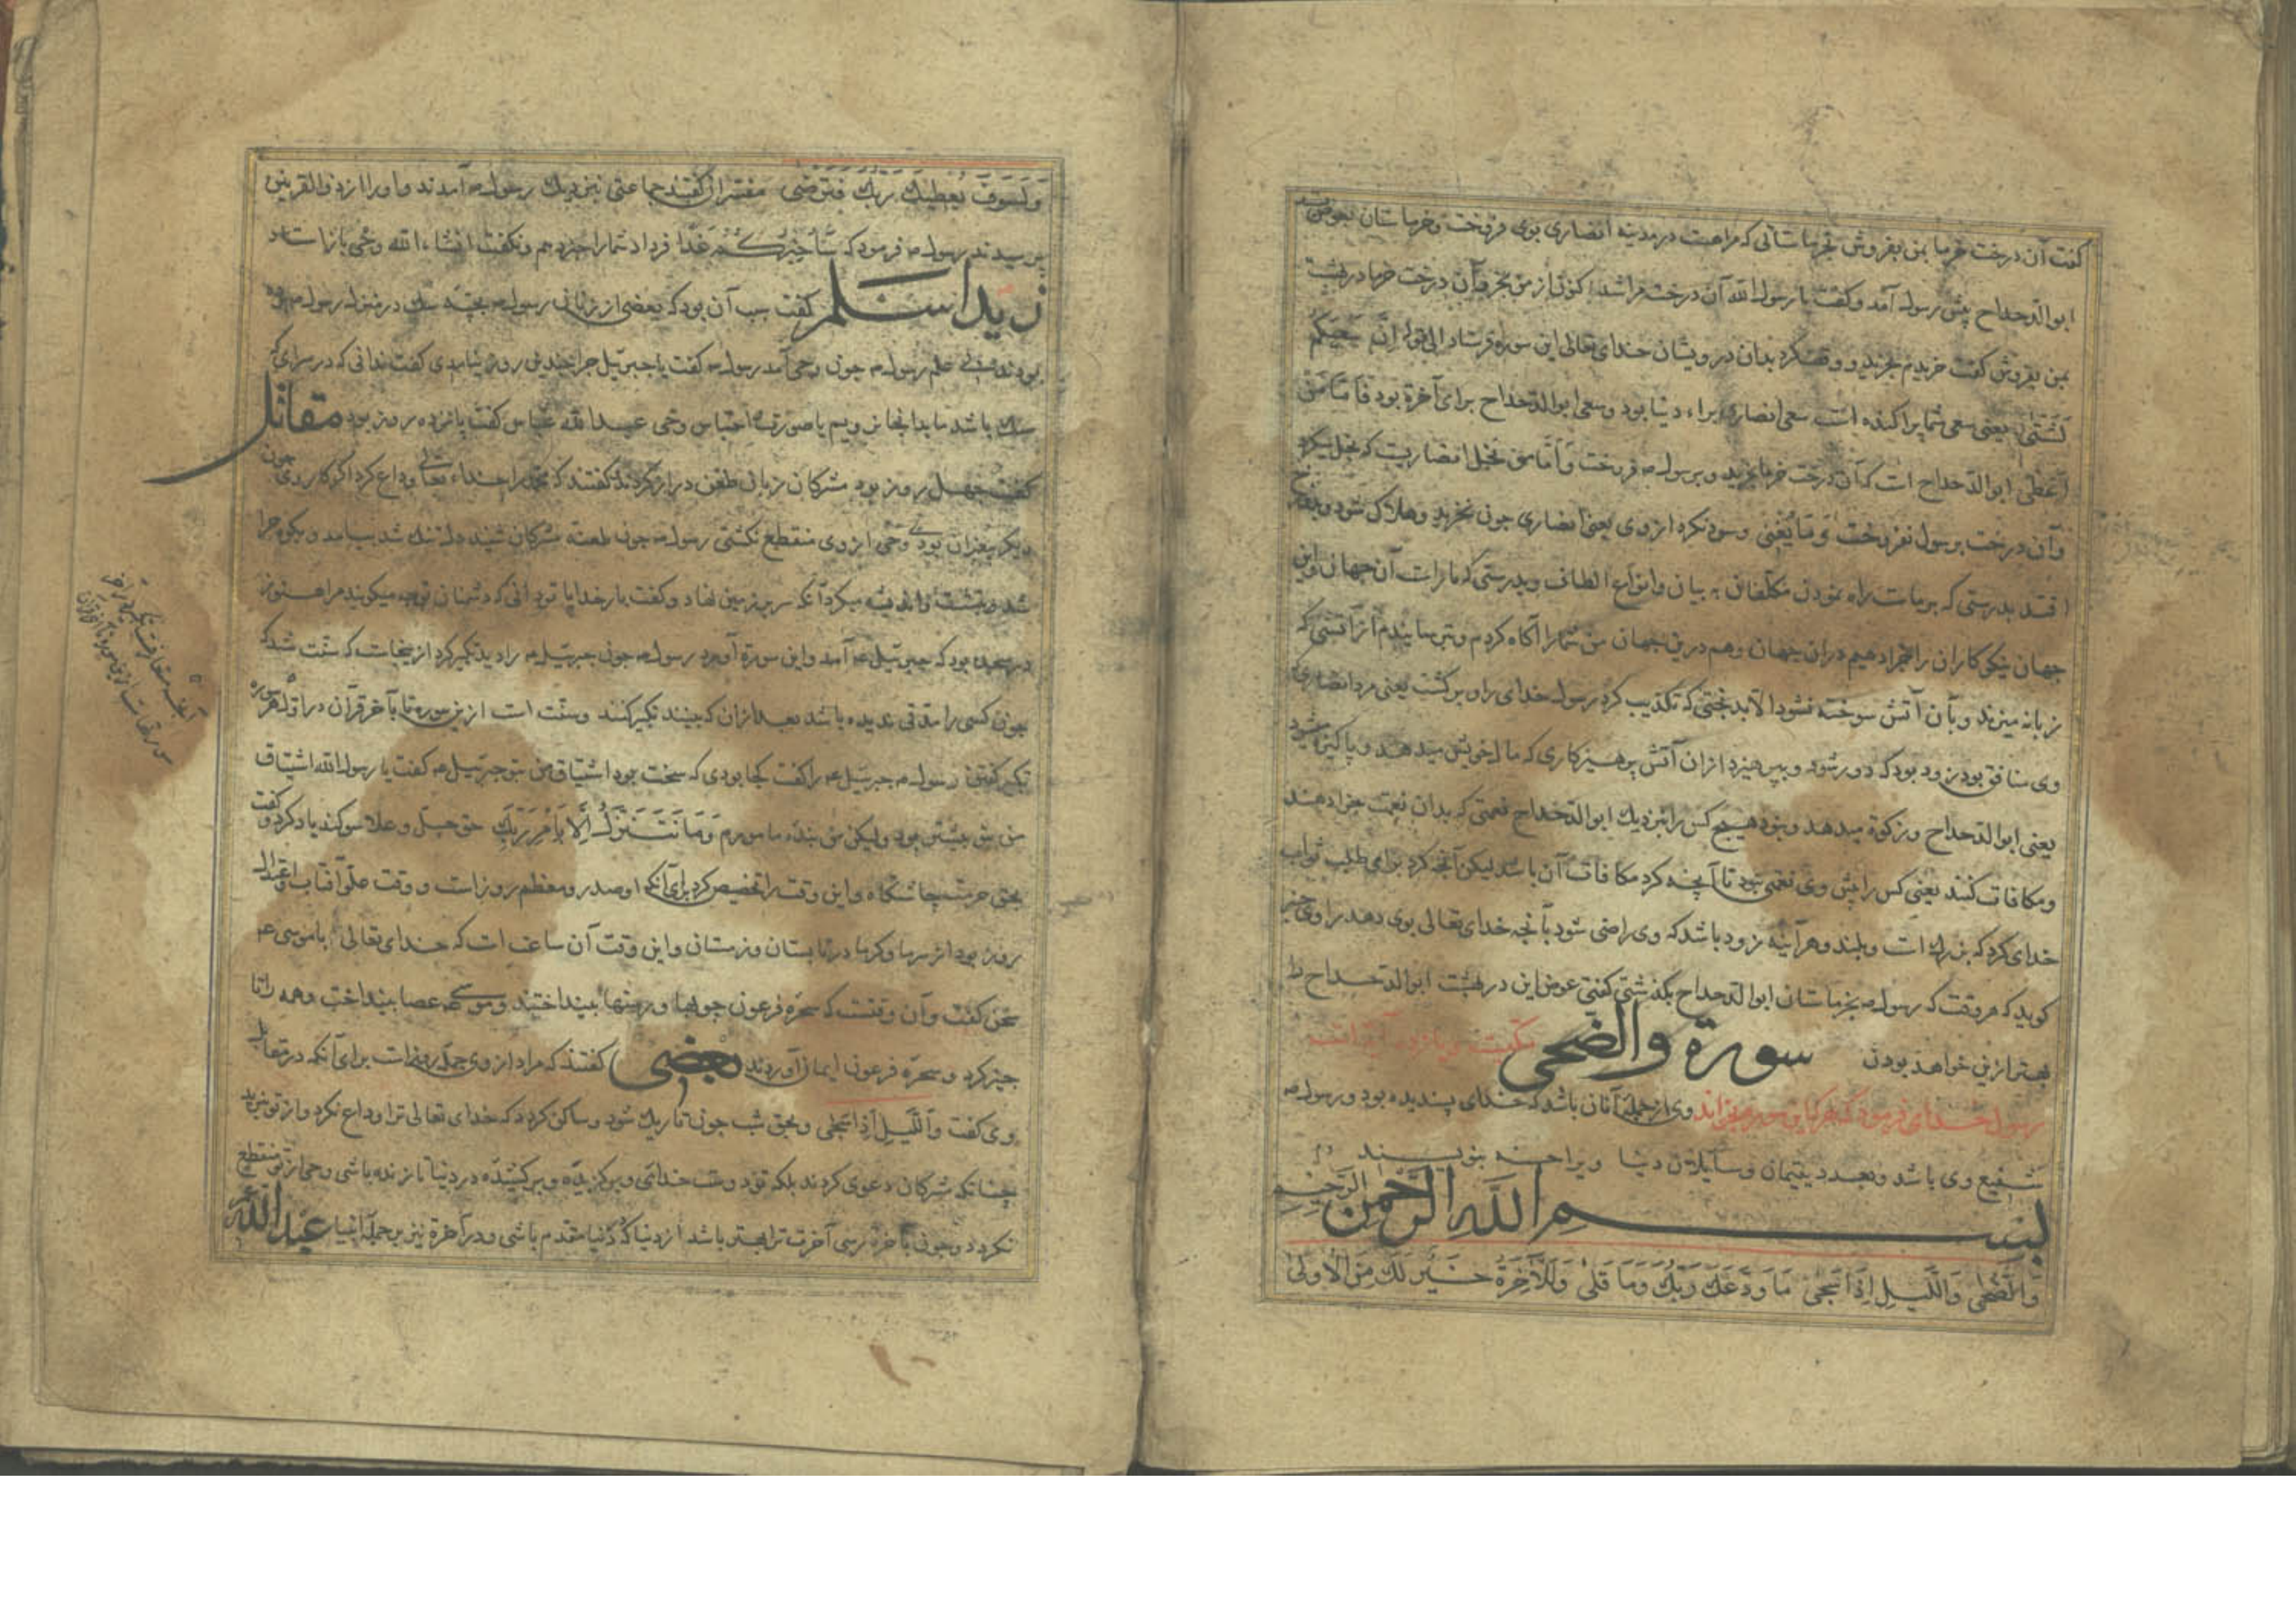 گفت آن درخت خرما بمن بفروش بخرماستانی که مراهست در مدینه انصاری بوی فروخت وخرماستان بعوض
ابوالدحداح پیش رسول آمد وگفت یا رسول الله آن درخت مراشد اکنون از من بخر آن درخت خرما در بهشت
بمن بفروش گفت خریدم بخرید و وقف کرد بدان درویشان خدای تعالی این سوره فرستاد الی قوله اِنَّ سَعْیَکُم
لَشَتّی یعنی سعی شما پراکنده است سعی انصاری برای دنیا بود وسعی ابوالدحداح برای آخرة بود فَاَمّا مَن
اَعطی ابوالدحداح است که آن درخت خرما بخرید و برسول ص فروخت وَاَمّا مَن بَخِلَ انصاریست که بخل کرد
وآن درخت برسول نفروخت وَمَا یُغنی وسود نکرد از وی یعنی انصاری چون بخرید وهلاک شود وبدوزخ
افتد بدرستی که برماست راه نمودن مکلفان به بیان وانواع الطاف وبدرستی که ماراست آن جهان واین
جهان نیکوکاران را جزا دهیم دران جهان وهم درین جهان من شمارا آگاه کردم وترسانیدم از آتشی که
زبانه میزند وبآن آتش سوخته نشود الا بدبختی که تکذیب کرد رسول خدای راه برگشت یعنی مرد انصاری
وی منافق بود زود بود که دور شود وبپرهیزد ازان آتش پرهیزکاری که مال خویش میدهد و پاکیزه میشود
یعنی ابوالدحداح وزکوة میدهد ونبود هیچ کس را نزدیک ابوالدحداح نعمتی که بدان نعمت جزا دهند
ومکافات کنند یعنی کس را پیش وی نعمتی نبود تا آنچه کرد مکافات آن باشد لیکن آنچه کرد برای طلب ثواب
خدای کرد که بزرگ است وبلند وهرآینه زود باشد که وی راضی شود بآنچه خدای تعالی بوی دهد راوی خبر
گوید که هر وقت که رسول ص بخرماستان ابوالدحداح بگذشتی گفتی عوض این در بهشت ابوالدحداح را
بهتر ازین خواهد بودن سورة والضحی
رسول خدای فرمود که هرکه این سوره بخواند وی از جمله آنان باشد که خدای پسندیده بود و رسول ص
شفیع وی باشد وبعدد یتیمان وسایلان دنیا ویرا حسنه بنویسند
بسم الله الرحمن الرحیم
وَالضُّحی وَاللَّیلِ اِذَا سَجی مَا وَدَّعَکَ رَبُّکَ وَمَا قَلی وَلَلآخِرَةُ خَیْرٌ لَکَ مِنَ الاُولی
وَلَسَوفَ یُعطیکَ رَبُّکَ فَتَرضی مفسران گفتند جماعتی نزدیک رسول ص آمدند واورا از ذوالقرنین
پرسیدند رسول ص فرمود که سَاُخبِرُکُم غَداً فردا شمارا خبر دهم ونگفت انشاء الله وحی باز استاد
زید اسلم گفت سبب آن بود که بعضی از زنان رسول ص بچه سگ در منزل رسول ص
بودند بی علم رسول ص چون وحی آمد رسول ص گفت یا جبرئیل چرا چندین روز نیامدی گفت ندانی که در سرای که
سگ باشد ما بدانجا نرویم یا صورت احتباس وحی عبدالله عباس گفت پانزده روز بود مقاتل
گفت چهل روز بود مشرکان زبان طعن دراز کردند گفتند که محمد را خدای تعالی وداع کرد اگر کار وی چون
دیگر پیغمبران بودی وحی از وی منقطع نگشتی رسول ص چون طعنه مشرکان شنید دلتنگ شد بیامد و بکوه حرا
شد وبنشست واندیشه میکرد آنگه سر بر زمین نهاد وگفت بار خدایا تو دانی که دشمنان توچه میگویند مرا هنوز
در سجده بود که جبرئیل ع آمد واین سوره آورد رسول ص چون جبرئیل ع را دید تکبیر کرد ازینجاست که سنت شد که
چون کسی را مدتی ندیده باشد بعد ازان که ببیند تکبیر کنند وسنت است ازین سوره تا بآخر قرآن در اول هر سوره
تکبیر گفتن رسول ص جبرئیل ع را گفت کجا بودی که سخت بود اشتیاق من بتو جبرئیل ع گفت یا رسول الله اشتیاق
من بتو بیشتر بود ولیکن من بنده مامورم وَمَا نَتَنَزَّلُ اِلّا بِاَمرِ رَبِّکَ حق جل وعلا سوگند یاد کرد وگفت
بحق حرمت چاشتگاه واین وقت را تخصیص کرد برای آنکه او صدر ومعظم روز است و وقت علو آفتاب واعتدال
روز بود از سرما وگرما در تابستان وزمستان واین وقت آن ساعت است که خدای تعالی باموسی ع
سخن گفت وآن وقتست که سحره فرعون چوبها و رسنها بینداختند وموسی ع عصا بینداخت وهمه را نا
چیز کرد وسحره فرعون ایمان آوردند بعضی گفتند که مراد از وی جمله روز است برای آنکه در مقابله
وی گفت وَاللَّیلِ اِذَا سَجی وبحق شب چون تاریک شود وساکن گردد که خدای تعالی ترا وداع نکرد واز تو نبرید
چنانکه مشرکان دعوی کردند بلکه تو دوست خدائی وبرگزیده وبرکشیده در دنیا تا زنده باشی وحی از تو منقطع
نگردد وچون بآخرة رسی آخرت ترا بهتر باشد از دنیا که در دنیا مقدم باشی ودر آخرة نیز بر جمله انبیا عبدالله